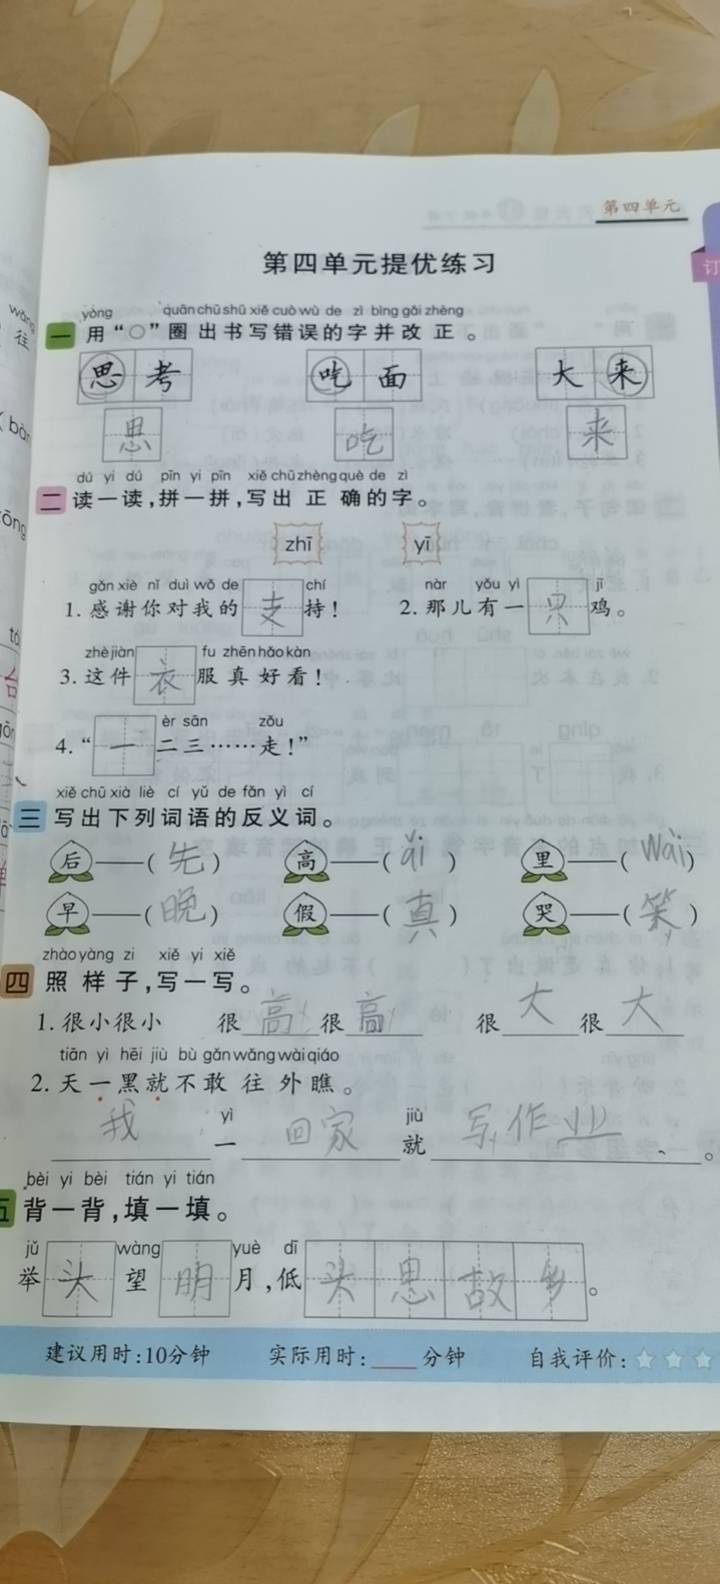 第四单元
第四单元提优练习
yòng quān chū shū xiě cuò wù de zì bìng gǎi zhèng
一 用“○”圈出书写错误的字并改正。
思考 吃面 大来
思 吃 来
dú yi dú pīn yi pīn xiě chū zhèng què de zì
二 读一读,拼一拼,写出正确的字。
zhī yī
gǎn xiè nǐ duì wǒ de chí nàr yǒu yì jī
1. 感谢你对我的支持! 2. 那儿有一只鸡。
zhè jiàn fu zhēn hǎo kàn
3. 这件衣服真好看!
èr sān zǒu
4. “一二三……走!”
xiě chū xià liè cí yǔ de fǎn yì cí
三 写出下列词语的反义词。
后——(先) 高——(ǎi) 里——(Wài)
早——(晚) 假——(真) 哭——(笑)
zhào yàng zi xiě yi xiě
四 照样子,写一写。
1. 很小很小 很高很高 很大很大
tiān yì hēi jiù bù gǎn wǎng wài qiáo
2. 天一黑就不敢往外瞧。
yì jiù
我一回家就写作业、。
bèi yi bèi tián yi tián
五 背一背,填一填。
jǔ wàng yuè dī
举头望明月,低头思故乡。
建议用时:10分钟 实际用时:____分钟 自我评价:
wǎng
往
订